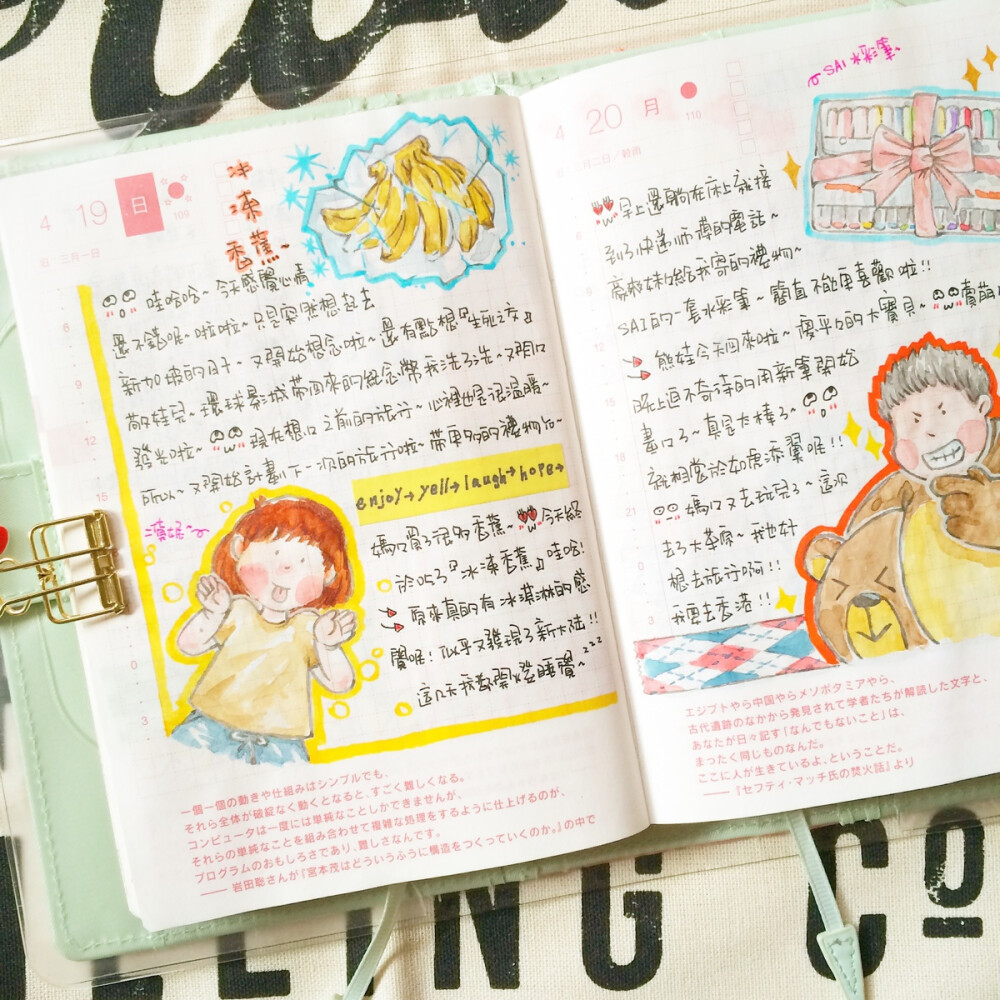 4 19 日
109
旧 三月一日
冰
凍
香蕉~
哇哈哈~今天感覺心情
還不錯喔~啦啦~只是突然想起去
新加坡的日子~又開始想念啦~還有點想『生死之交』
敲娃兒~環球影城帶回來的紀念幣我洗了洗~又開口
發光啦~ 現在想口之前的旅行~心裡也是很溫暖~
所以~又開始計劃下一次的旅行啦~帶更多的禮物后~
enjoy→yell→laugh→hope→
媽口買了很多香蕉~ 今天終
於吃了『冰凍香蕉』哇哈!
原來真的有冰淇淋的感
覺喔!似乎又發現了新大陸!!
這几天我都開燈睡覺~zzz
6
9
12
15
21
0
3
一個一個の動きや仕組みはシンプルでも、
それら全体が破綻なく動くとなると、すごく難しくなる。
コンピュータは一度には単純なことしかできませんが、
それらの単純なことを組み合わせて複雑な処理をするように仕上げるのが、
プログラムのおもしろさであり、難しさなんです。
—— 岩田聡さんが『宮本茂はどういうふうに構造をつくっていくのか。』の中で
4 20 月
110
月二日/穀雨
SAI 水彩筆
早上還躺在床上就接
到了快遞師傅的電話~
薇薇妹給我寄的禮物~
SAI的一套水彩筆~簡直不能更喜歡啦!!
熊娃今天回來啦~
的大寶貝~ 賣萌
晚上迫不奇待的用新筆開始
畫口了~真是大棒了~
就相當於如虎添翼喔!!
媽口又去玩兒了~這次
去了大草原~我也好
想去旅行啊!!
我要去香港!!
6
9
12
15
21
3
エジプトやら中国やらメソポタミアやら、
古代遺跡のなかから発見されて学者たちが解読した文字と、
あなたが日々記す「なんでもないこと」は、
まったく同じものなんだ。
ここに人が生きているよ、ということだ。
——『セフティ・マッチ氏の焚火話』より
LING CO